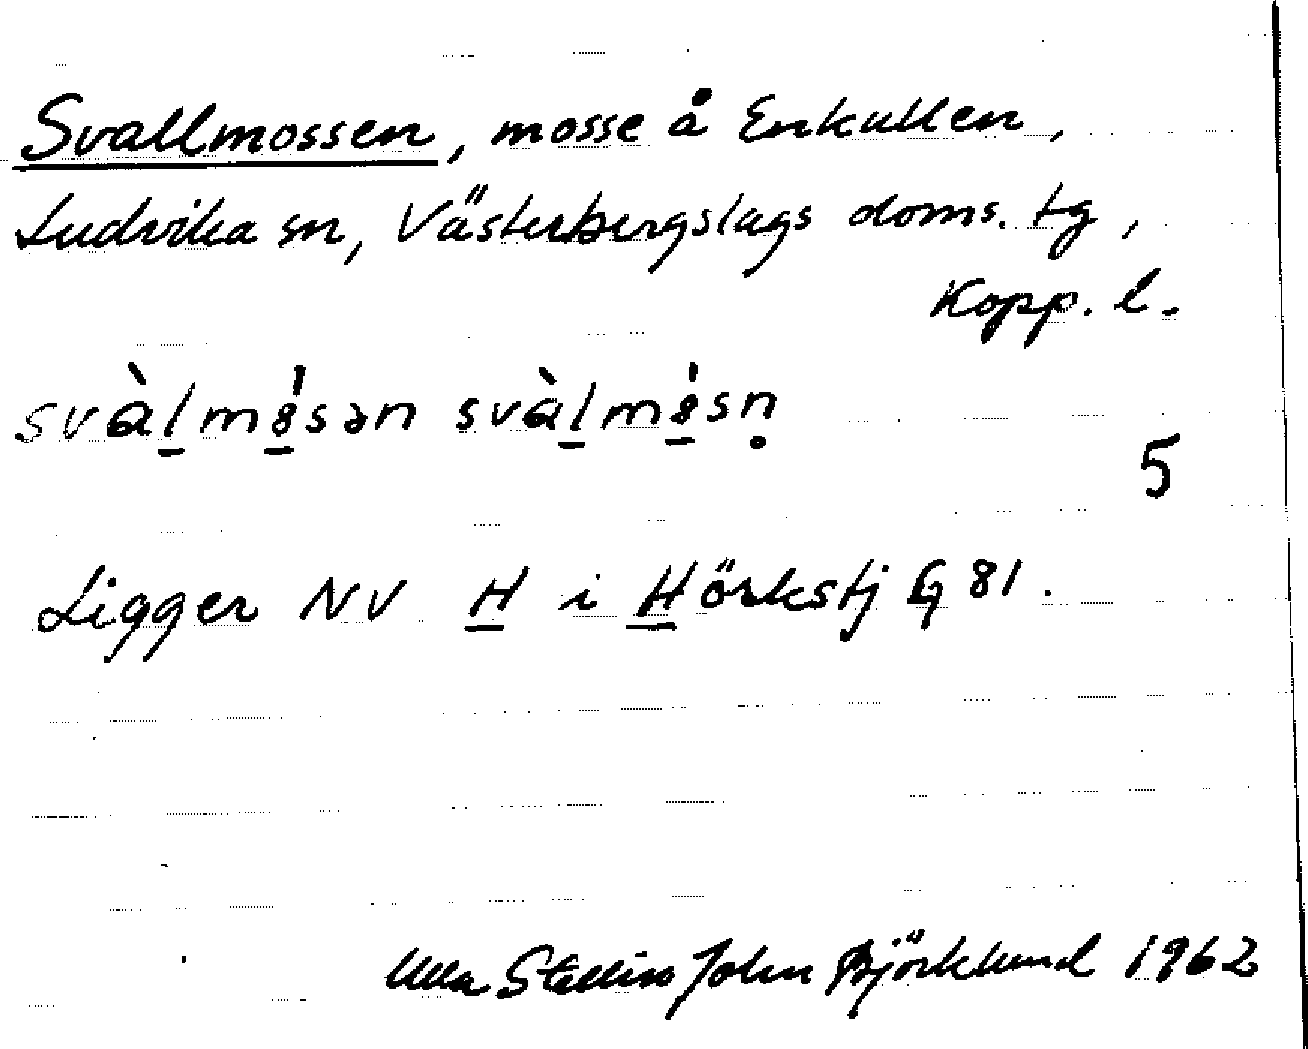 Svallmossen, mosse å Enkullen,
Ludvika sn, Västerbergslags doms. tg,
Kopp. l.
svàl̲mȯ̲sən svàl̲mȯ̲sṇ
5
Ligger NV H i Hörkstj G 81.
Ulla Stallin John Björklund 1962